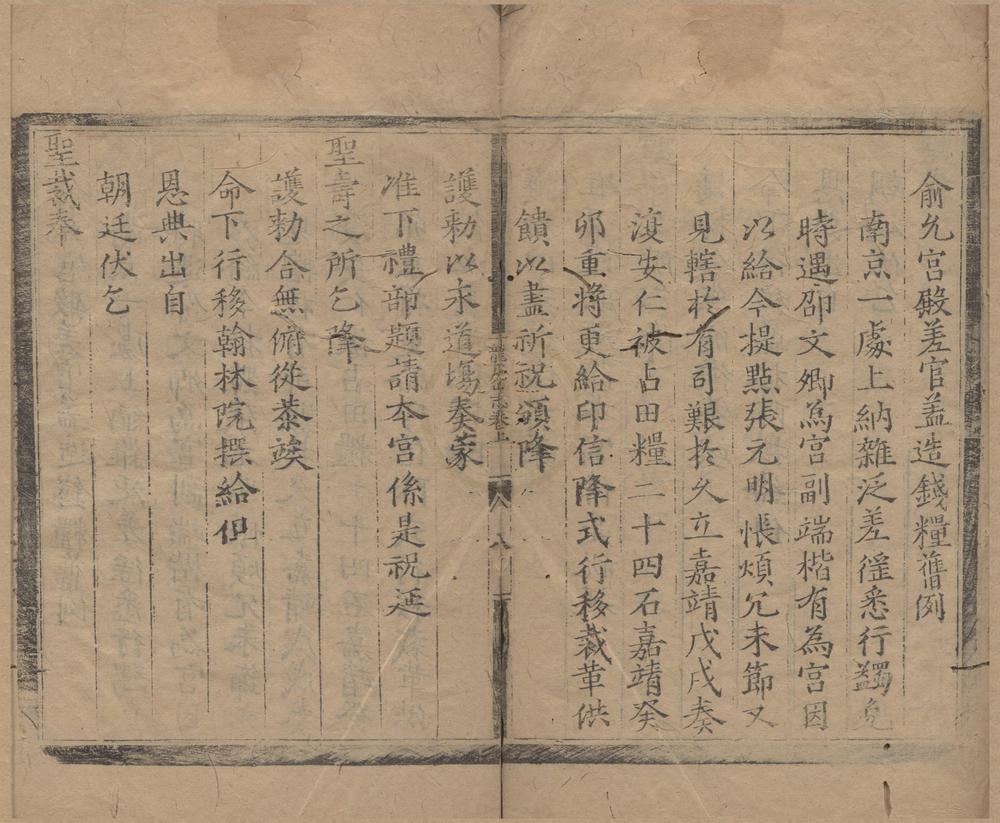 俞允宮殿差官盖造錢糧舊例
南京一處上納雜泛差徭悉行蠲免
時遇邵文卿為宮副端楷有為宮因
以給今提點張元明悵煩冗未節又
見轄扵有司艱扵久立嘉靖戊戌奏
復安仁被占田糧二十四石嘉靖癸
卯重將更給印信降式行移裁革供
饋以盡祈祝頒降
護勑以未道塲奏蒙
准下禮部題請本宮係是祝延
聖壽之所乞降
護勑合無俯從恭竢
命下行移翰林院撰給但
恩典出自
朝廷伏乞
聖裁奉
志卷上
八